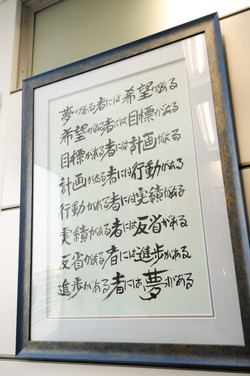 夢がある者には希望がある
希望がある者には目標がある
目標がある者には計画がある
計画がある者には行動がある
行動がある者には実績がある
実績がある者には反省がある
反省がある者には進歩がある
進歩がある者には夢がある